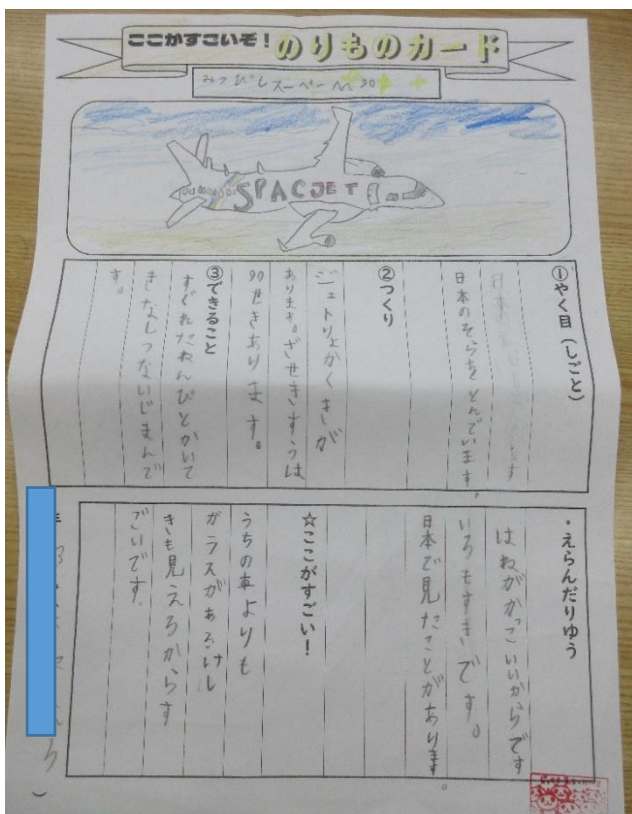 ここがすごいぞ！のりものカード
みつびしスペー 90
SPACJET
①やく目（しごと）
日本のそらをとんでいます。
②つくり
ジェトりょかくきが
あります。ざせきすうは
90せきあります。
③できること
すぐれたねんぴとかいて
きなしつないじまんで
す。
・えらんだりゆう
はねがかっこいいからです
いろもすきです。
日本で見たことがあります。
☆ここがすごい！
うちの車よりも
ガラスがあるけし
きも見えるからす
ごいです。